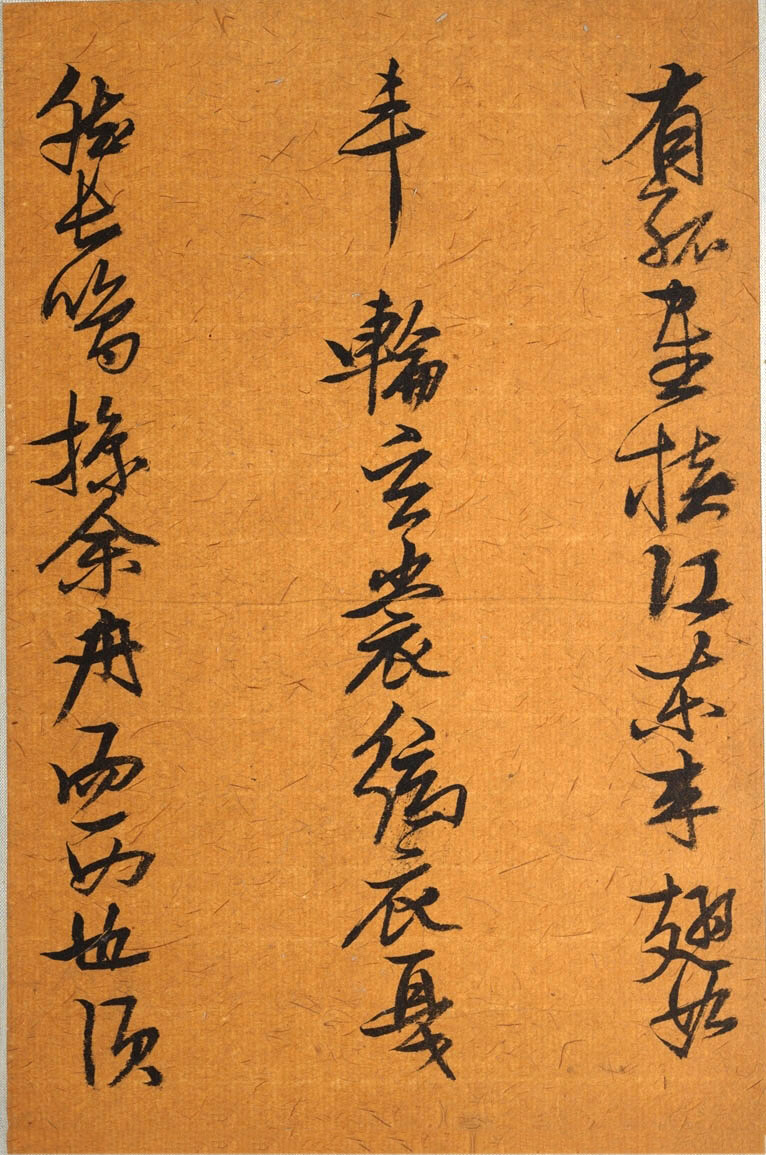 有孤鹤横江东来翅如
車輪玄裳縞衣戛
然長鳴掠余舟而西也須